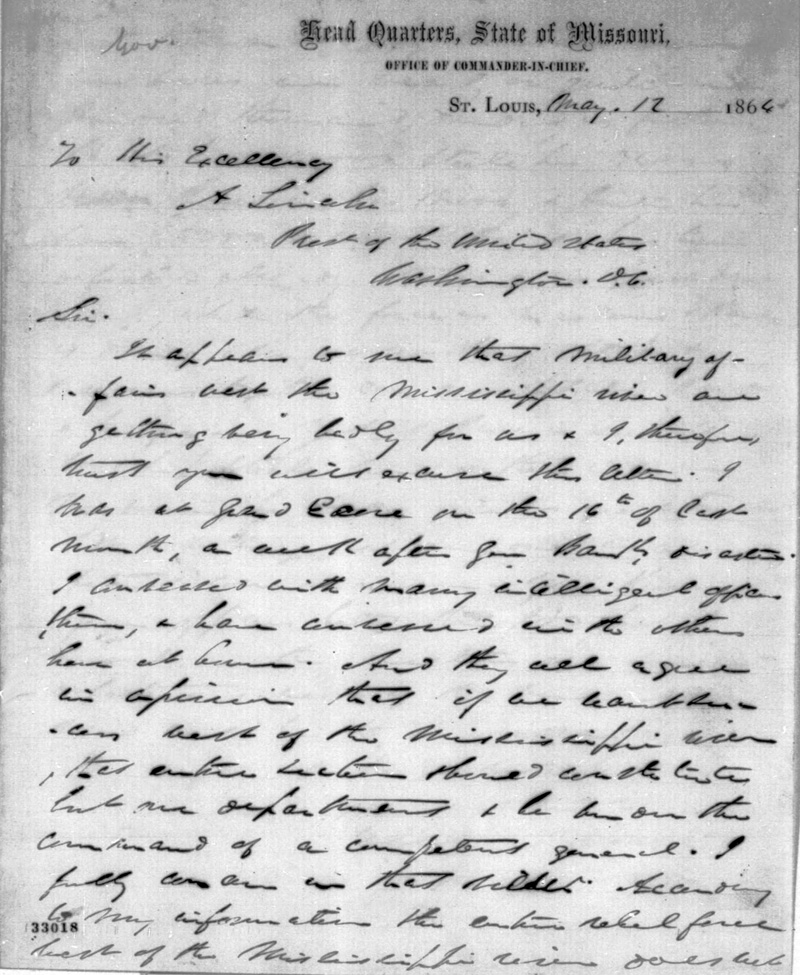 Gov.
Head Quarters, State of Missouri,
OFFICE OF COMMANDER-IN-CHIEF.
ST. LOUIS, May. 12 1864
To His Excellency
A Lincoln
Prest of the United States
Washington. D.C.
Sir.
It appears to me that military af-
-fairs west the Mississippi river are
getting very badly for us & I, therefore,
trust you will excuse this letter. I
was at Grand Ecore on the 16th of last
month, a week after Gen Banks, disaster.
I conversed with many intelligent officers
there, & have conversed with others
here at home. And they all agree
in opinion that if we want suc-
-cess west of the Mississippi river
that entire section should constitute
but one department & be under the
command of a competent general. I
fully concur in that belief. According
to my information the entire rebel force
33018
west of the Mississippi river does not